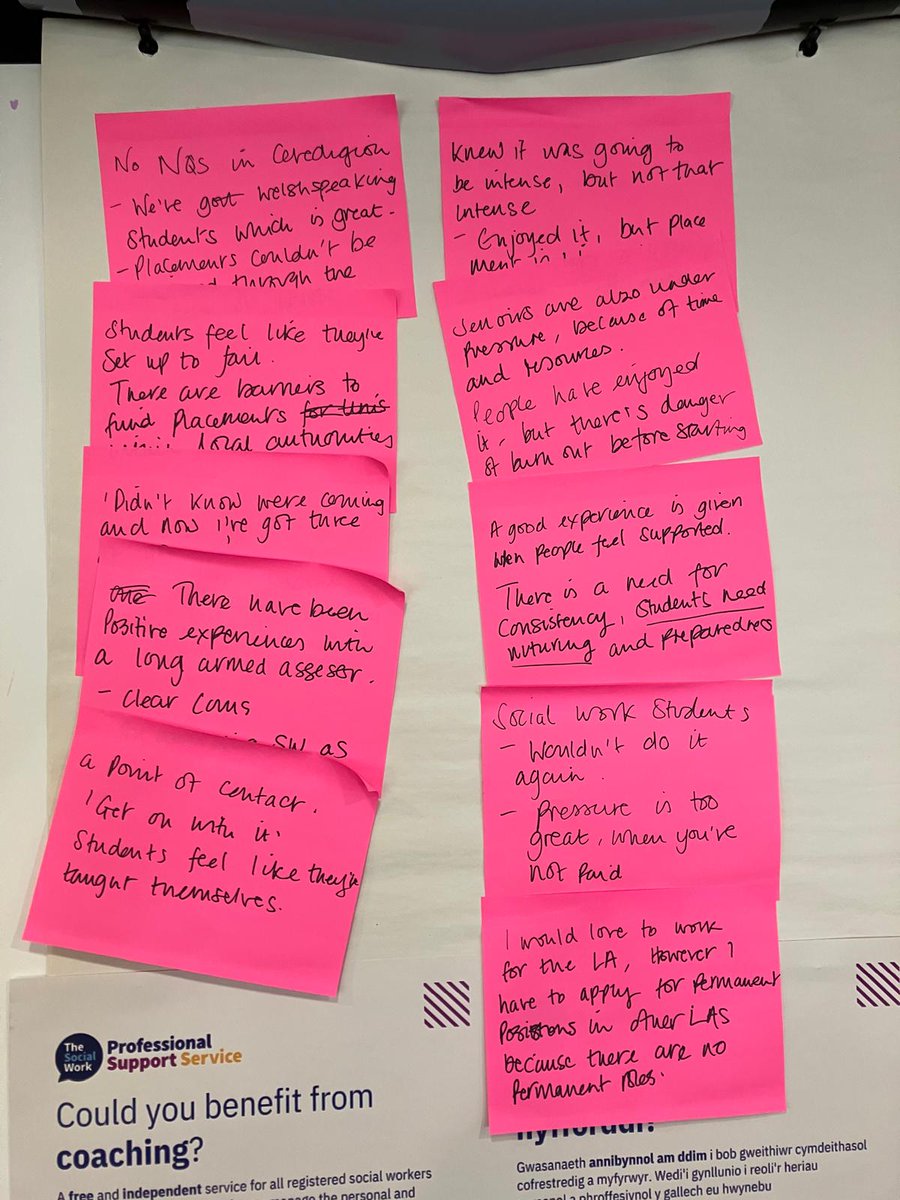 No NQS in Ceredigion
- We've got welshspeaking
Students which is great.
- Placements couldn't be
through the
Students feel like they're
Set up to fail.
There are barriers to
fund Placements for Unis
local authorities
'Didn't know were coming
and now I've got three
There have been
Positive experiences with
a long armed assesor.
- Clear Coms
SW as
a Point of contact.
'Get on with it'
Students feel like they're
taught themselves.
Knew it was going to
be intense, but not that
intense
- Enjoyed it, but place
ment
Seniors are also under
Pressure, because of time
and resources.
People have enjoyed
it, but there's danger
of burn out before starting
A good experience is given
when People feel supported.
There is a need for
Consistency, Students need
nuturing and Preparedness
Social work Students
- Wouldn't do it
again.
- Pressure is too
great, when you're
not Paid
I would love to work
for the LA, However I
have to apply for Permanent
Positions in other LAS
because there are no
Permanent Roles.
The
Social
Work
Professional
Support Service
Could you benefit from
coaching?
A free and independent service for all registered social workers
the personal and
hyfforddi?
Gwasanaeth annibynnol am ddim i bob gweithiwr cymdeithasol
cofrestredig a myfyrwyr. Wedi'i gynllunio i reoli'r heriau
a phroffesiynol y gallech eu hwynebu